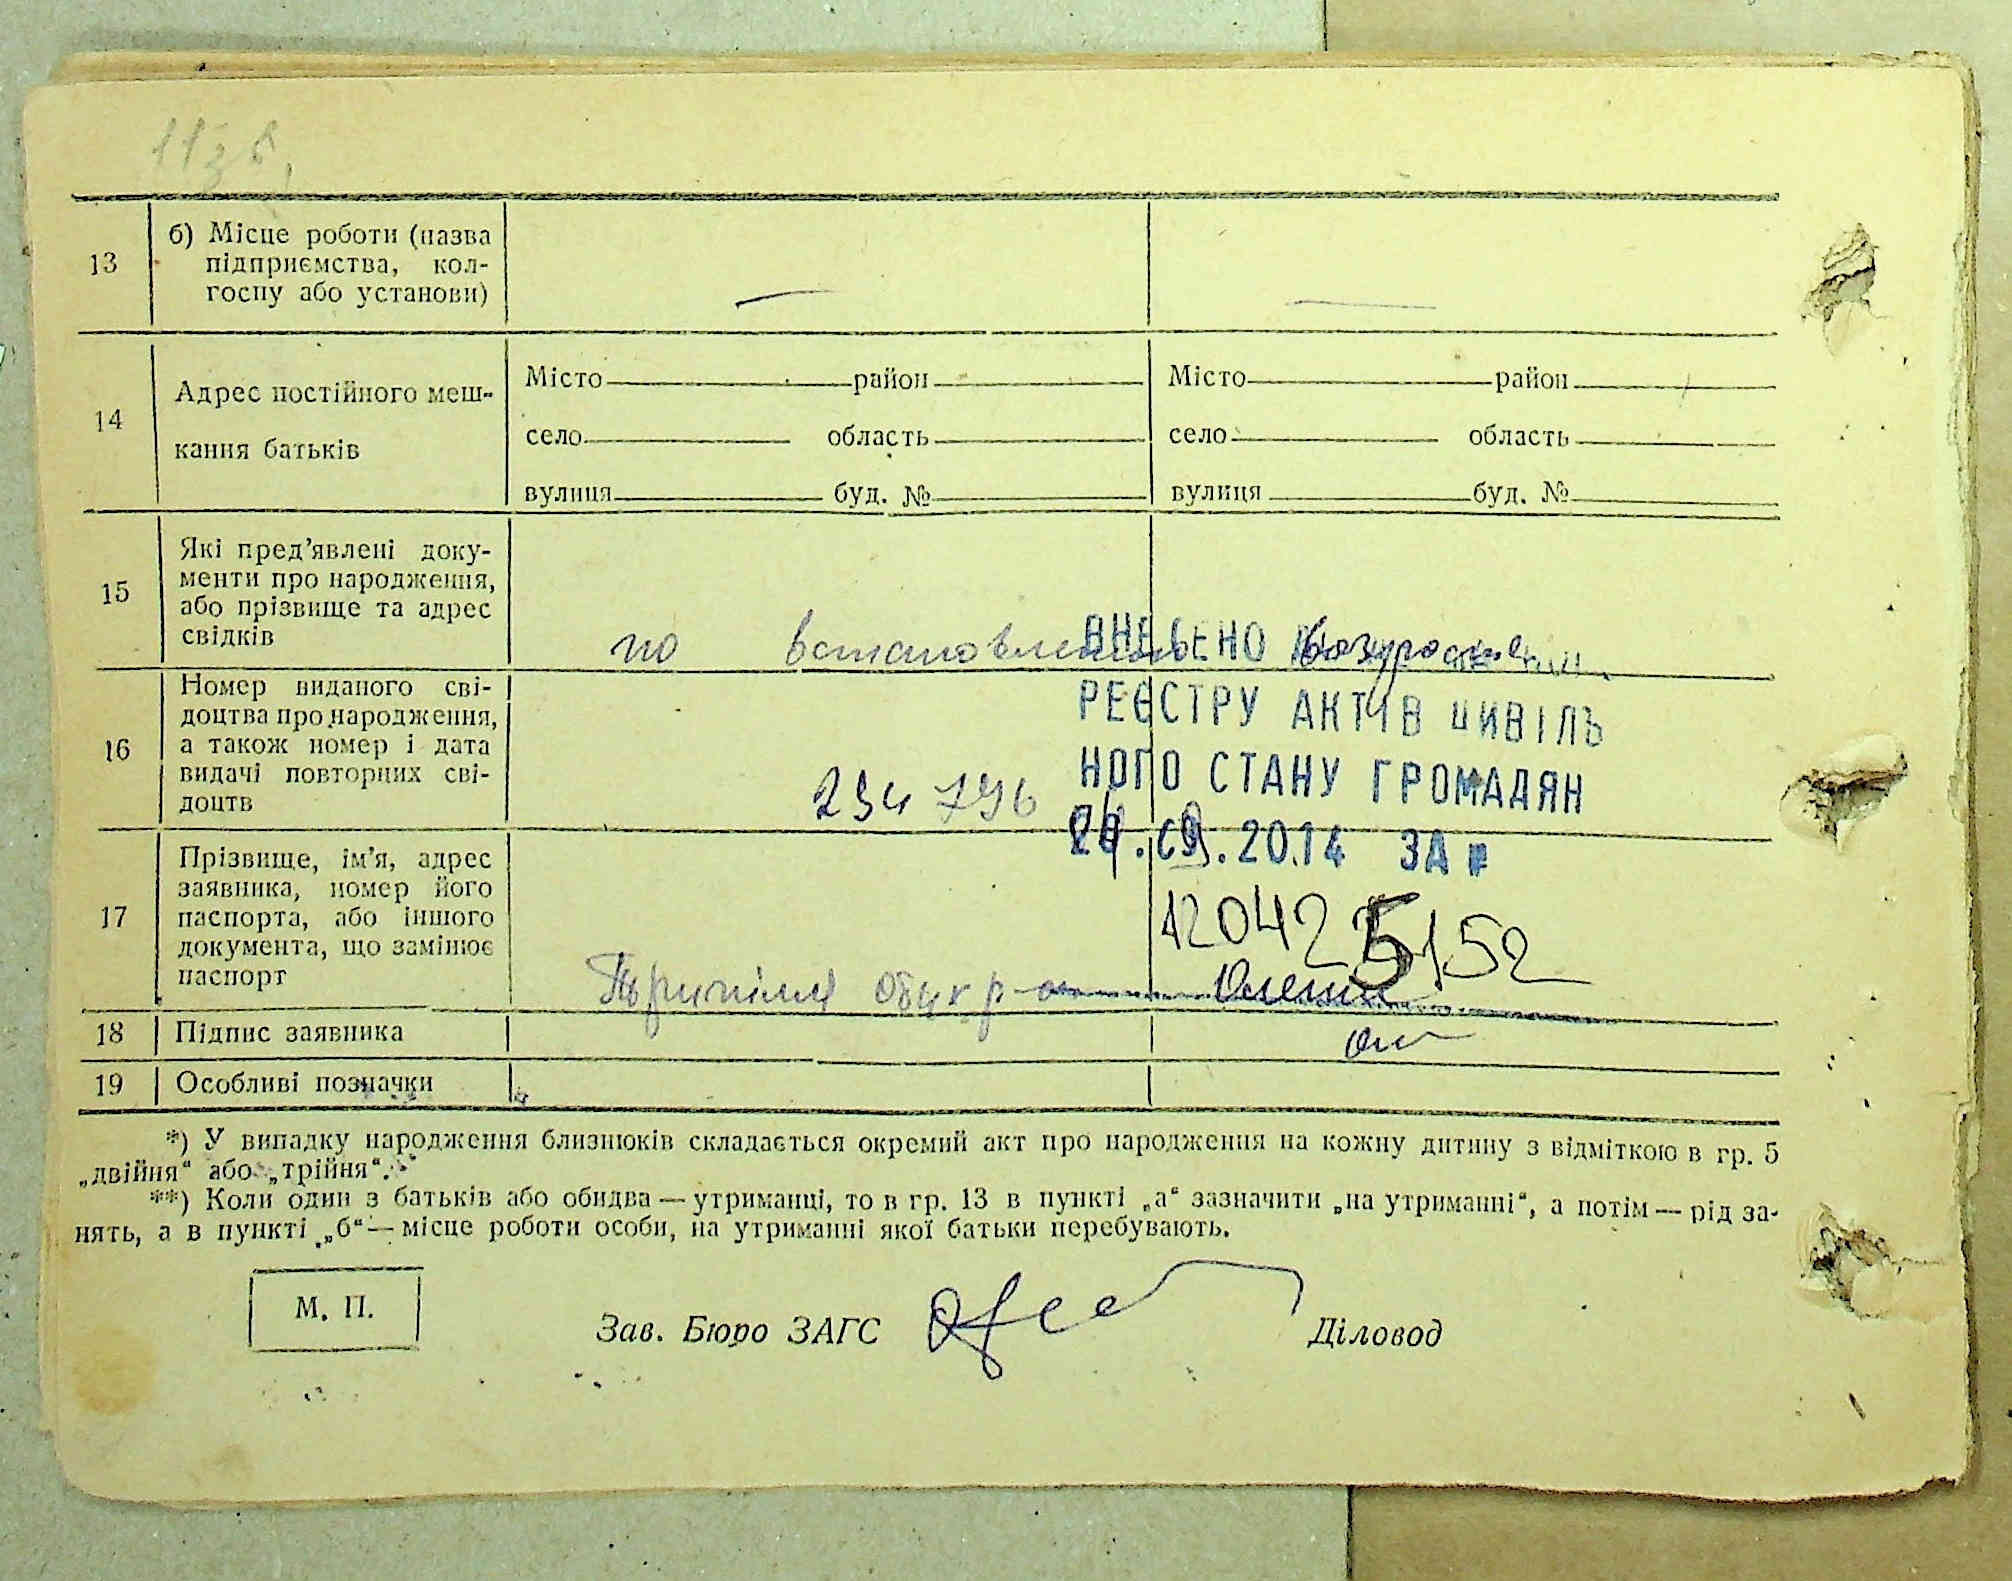 13
б) Місце роботи (назва
підприємства, кол-
госпу або установи)
—
—
14
Адрес постійного меш-
кання батьків
Місто район
село область
вулиця буд. №
Місто район
село область
вулиця буд. №
15
Які пред’явлені доку-
менти про народження,
або прізвище та адрес
свідків
по
ВНЕСЕНО
16
Номер виданого сві-
доцтва про народження,
а також номер і дата
видачі повторних сві-
доцтв
234796
РЕЄСТРУ АКТІВ ЦИВІЛЬ
НОГО СТАНУ ГРОМАДЯН
.2014 ЗА №
17
Прізвище, ім’я, адрес
заявника, номер його
паспорта, або іншого
документа, що замінює
паспорт
12042 5152
18
Підпис заявника
19
Особливі позначки
*) У випадку народження близнюків складається окремий акт про народження на кожну дитину з відміткою в гр. 5
„двійня“ або „трійня“.
**) Коли один з батьків або обидва — утриманці, то в гр. 13 в пункті „а“ зазначити „на утриманні“, а потім — рід за-
нять, а в пункті „б“ — місце роботи особи, на утриманні якої батьки перебувають.
М. П.
Зав. Бюро ЗАГС
Діловод